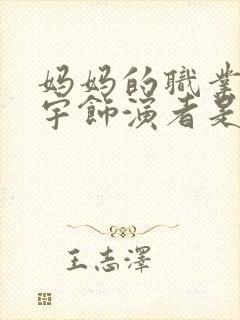 妈妈的職業
宇飾演者是
王志澤